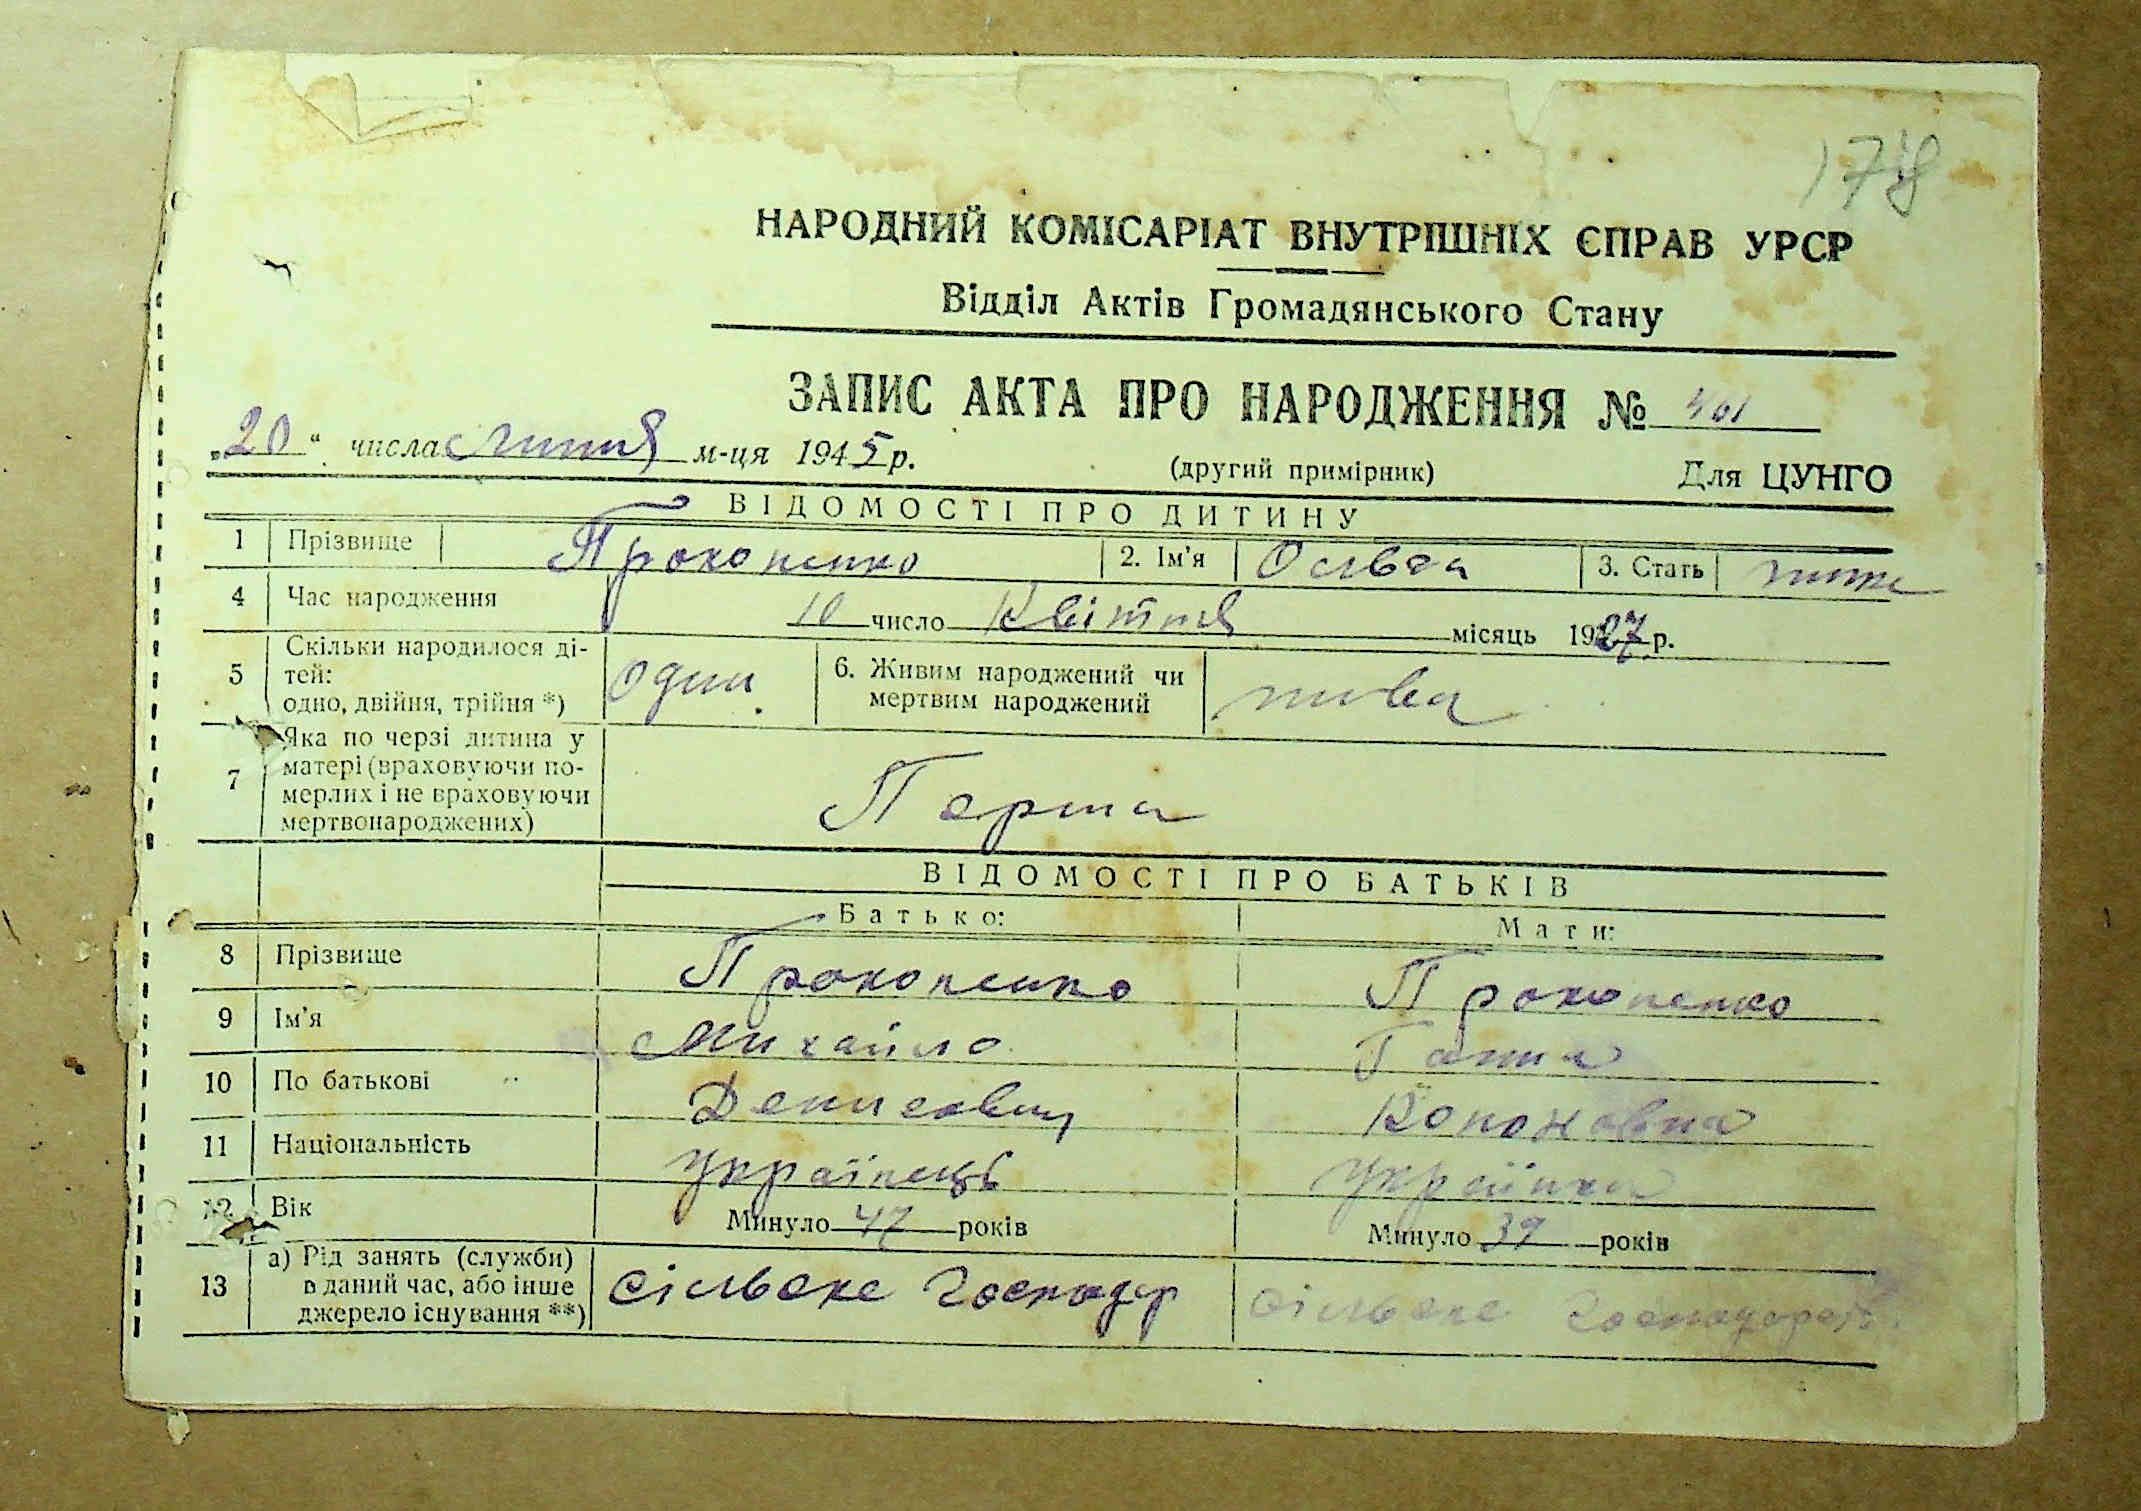 178
НАРОДНИЙ КОМІСАРІАТ ВНУТРІШНІХ СПРАВ УРСР
Відділ Актів Громадянського Стану
ЗАПИС АКТА ПРО НАРОДЖЕННЯ № 461
„20“ числа липня м-ця 1945 р. (другий примірник) Для ЦУНГО
ВІДОМОСТІ ПРО ДИТИНУ
1 Прізвище Прокопенко 2. Ім'я Ольга 3. Стать жіноч
4 Час народження 10 число Квітня місяць 1927 р.
5 Скільки народилося дітей: одно, двійня, трійня *) один 6. Живим народжений чи мертвим народжений жива
7 Яка по черзі дитина у матері (враховуючи померлих і не враховуючи мертвонароджених) Перша
ВІДОМОСТІ ПРО БАТЬКІВ
Батько: Мати:
8 Прізвище Прокопенко Прокопенко
9 Ім'я Михайло Ганна
10 По батькові Денисович Кононовна
11 Національність Українець Українка
12 Вік Минуло 47 років Минуло 39 років
13 а) Рід занять (служби) в даний час, або інше джерело існування **) сільске господар сільске